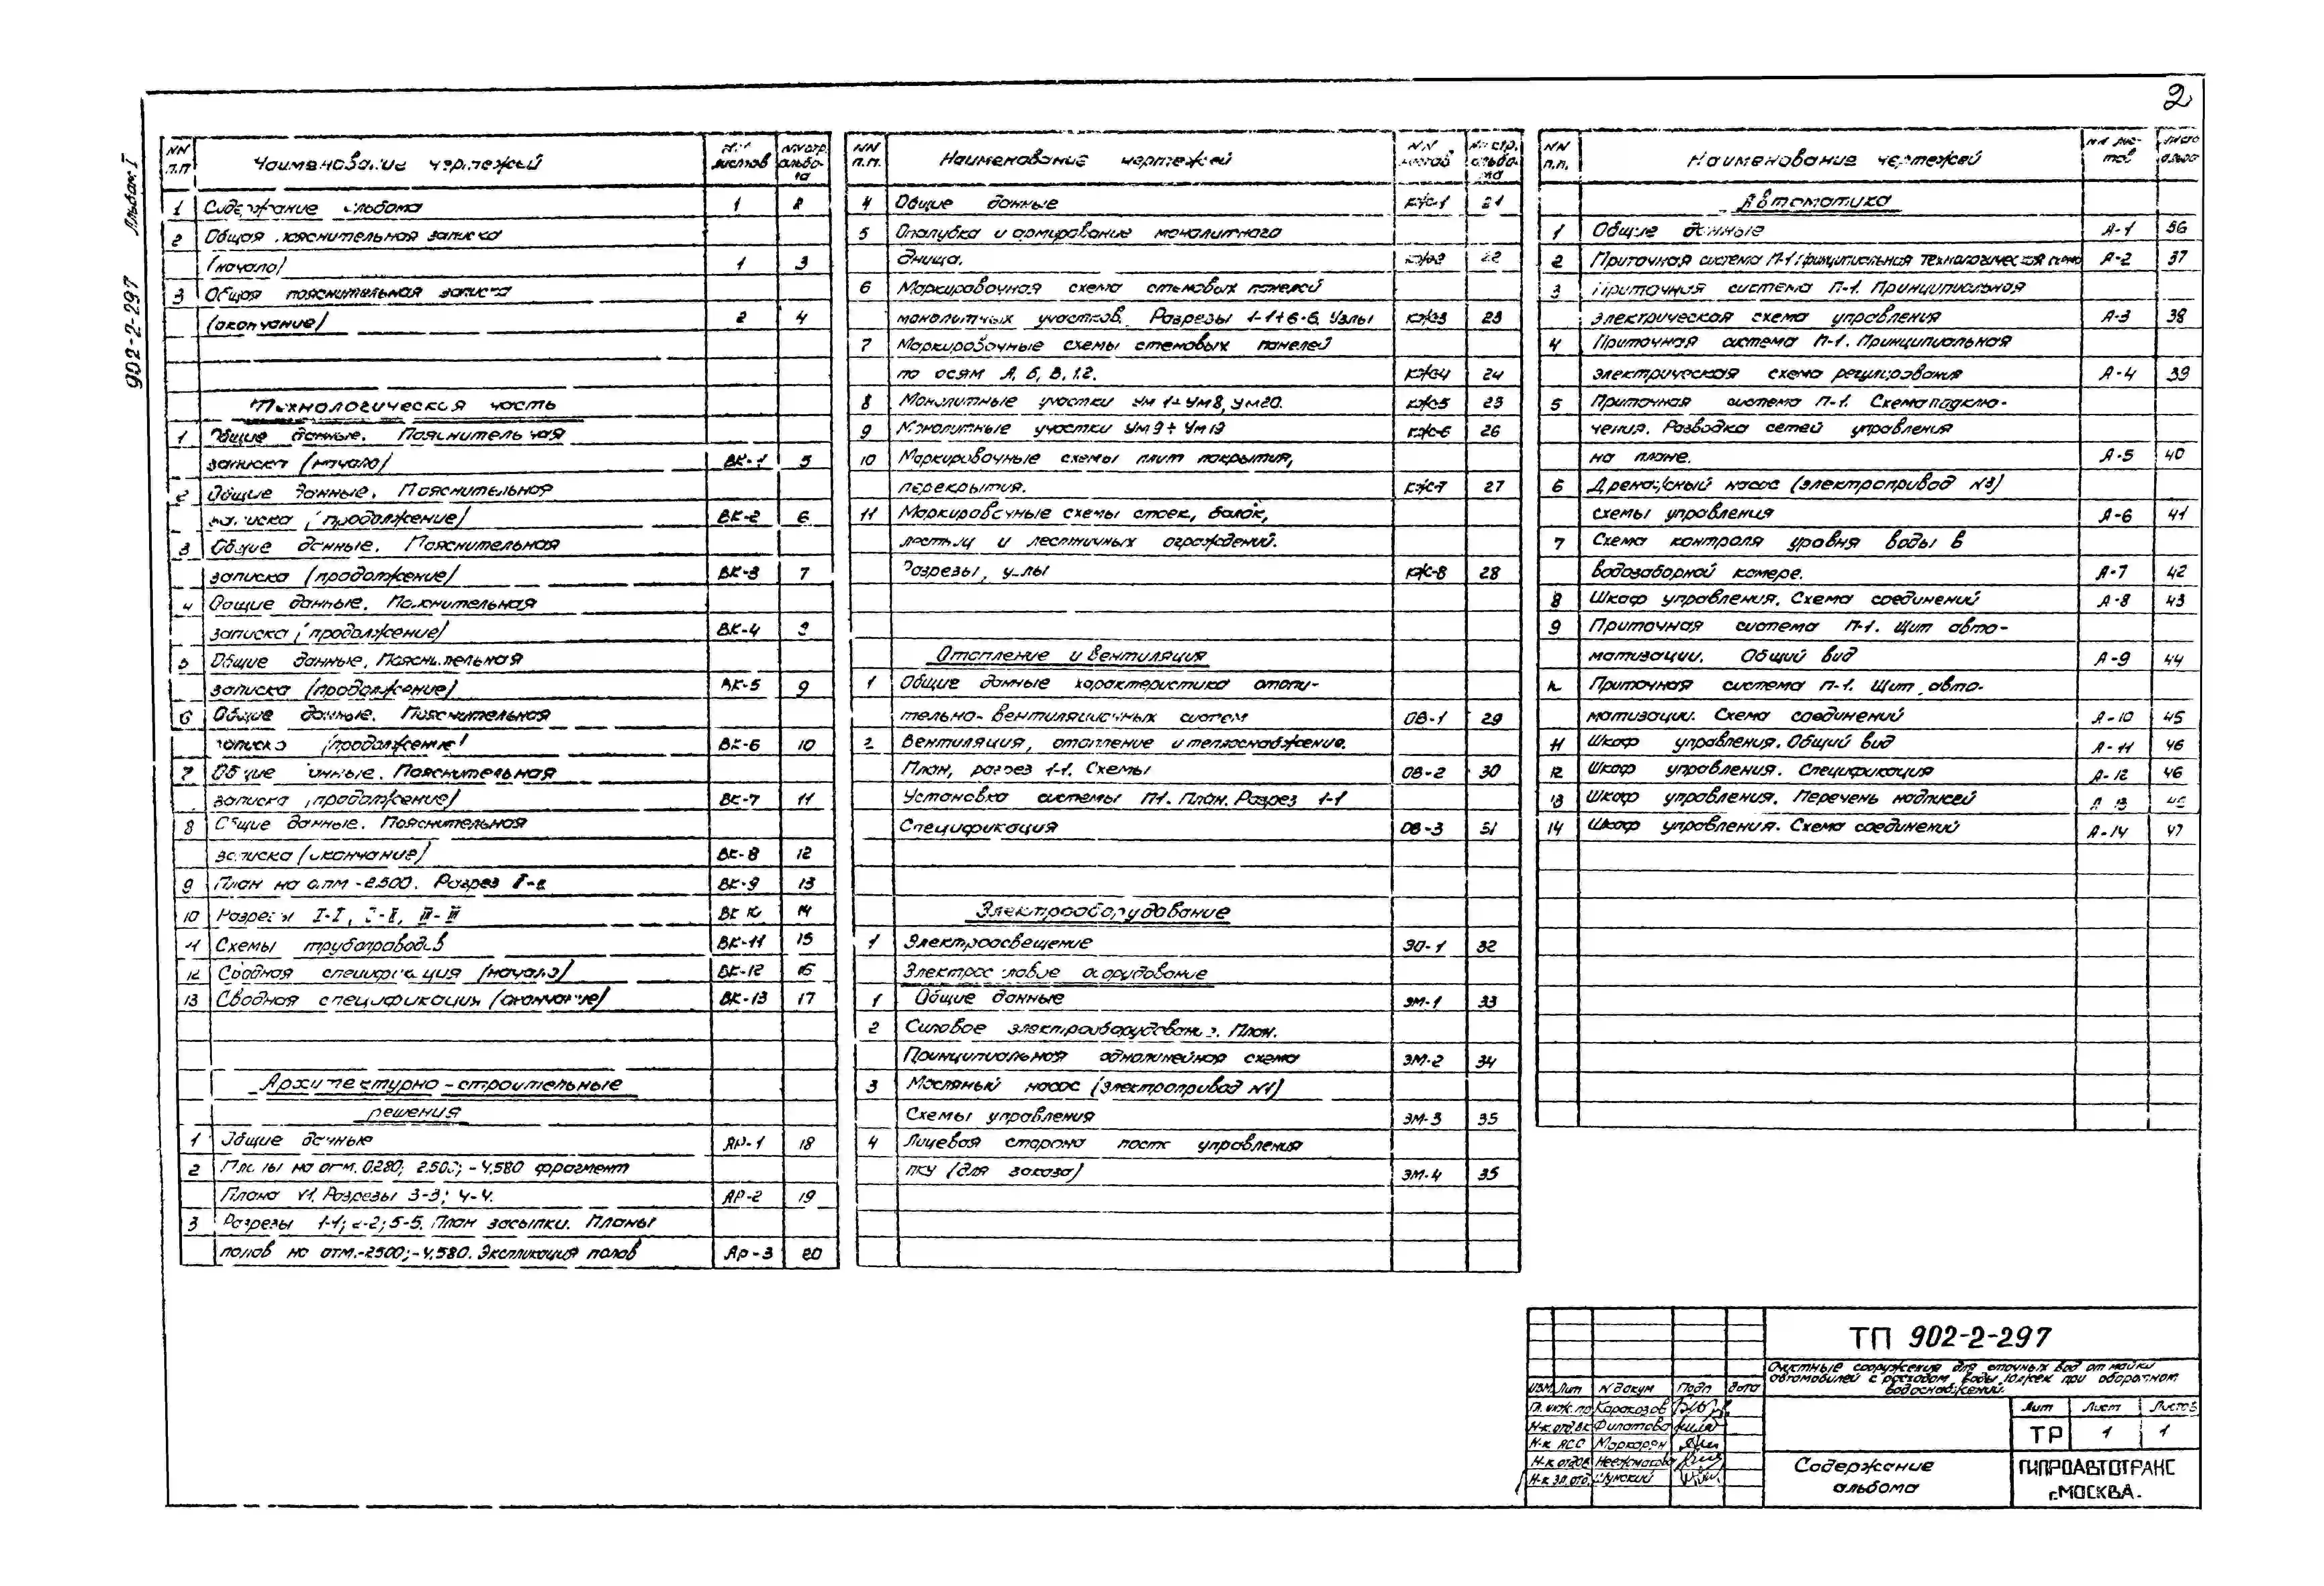 2
902-2-297 Альбом I
NN п.п Наименование чертежей NN листов NN стр. альбома
1 Содержание альбома 1 2
2 Общая пояснительная записка
(начало) 1 3
3 Общая пояснительная записка
(окончание) 2 4
Технологическая часть
1 Общие данные. Пояснительная
записка (начало) ВК-1 5
2 Общие данные. Пояснительная
записка (продолжение) ВК-2 6
3 Общие данные. Пояснительная
записка (продолжение) ВК-3 7
4 Общие данные. Пояснительная
записка (продолжение) ВК-4 8
5 Общие данные. Пояснительная
записка (продолжение) ВК-5 9
6 Общие данные. Пояснительная
записка (продолжение) ВК-6 10
7 Общие данные. Пояснительная
записка (продолжение) ВК-7 11
8 Общие данные. Пояснительная
записка (окончание) ВК-8 12
9 План на отм -2.500. Разрез ВК-9 13
10 Разрезы I-I, II-II, III-III ВК 10 14
11 Схемы трубопроводов ВК-11 15
12 Сводная спецификация (начало) ВК-12 16
13 Сводная спецификация (окончание) ВК-13 17
Архитектурно-строительные
решения
1 Общие данные АР-1 18
2 Планы на отм. 0.280; 2.500; -4.580 фрагмент
Плана №1. Разрезы 3-3; 4-4. АР-2 19
3 Разрезы 1-1; 2-2; 5-5. План засыпки. Планы
полов на отм.-2500;-4.580. Экспликация полов АР-3 20
NN п.п. Наименование чертежей NN листов NN стр. альбома
4 Общие данные КЖ-1 21
5 Опалубка и армирование монолитного
днища. КЖ-2 22
6 Маркировочная схема стеновых панелей
монолитных участков. Разрезы 1-1÷6-6. Узлы КЖ-3 23
7 Маркировочные схемы стеновых панелей
по осям А, Б, В, 1.2. КЖ-4 24
8 Монолитные участки Ум 1÷Ум8, Ум20. КЖ-5 25
9 Монолитные участки Ум9÷Ум19 КЖ-6 26
10 Маркировочные схемы плит покрытия,
перекрытия. КЖ-7 27
11 Маркировочные схемы стоек, балок,
лестниц и лестничных ограждений.
Разрезы, узлы КЖ-8 28
Отопление и вентиляция
1 Общие данные характеристика отопи-
тельно-вентиляционных систем ОВ-1 29
2 Вентиляция, отопление и теплоснабжение.
План, разрез 1-1. Схемы ОВ-2 30
Установка системы П1. План. Разрез 1-1
Спецификация ОВ-3 31
Электрооборудование
1 Электроосвещение ЭО-1 32
Электросиловое оборудование
1 Общие данные ЭМ-1 33
2 Силовое электрооборудование. План.
Принципиальная однолинейная схема ЭМ-2 34
3 Масляный насос (электропривод №1)
Схемы управления ЭМ-3 35
4 Лицевая сторона поста управления
ПКУ (для заказа) ЭМ-4 35
NN п.п. Наименование чертежей NN листов
Автоматика
1 Общие данные А-1 36
2 Приточная система П-1. Принципиальная технологическая схема А-2 37
3 Приточная система П-1. Принципиальная
электрическая схема управления А-3 38
4 Приточная система П-1. Принципиальная
электрическая схема регулирования А-4 39
5 Приточная система П-1. Схема подклю-
чения. Разводка сетей управления
на плане. А-5 40
6 Дренажный насос (электропривод №3)
схемы управления А-6 41
7 Схема контроля уровня воды в
водозаборной камере. А-7 42
8 Шкаф управления. Схема соединений А-8 43
9 Приточная система П-1. Щит авто-
матизации. Общий вид А-9 44
Приточная система П-1. Щит авто-
матизации. Схема соединений А-10 45
11 Шкаф управления. Общий вид А-11 46
12 Шкаф управления. Спецификация А-12 46
13 Шкаф управления. Перечень надписей А 13
14 Шкаф управления. Схема соединений А-14 47
ТП 902-2-297
Очистные сооружения для сточных вод от мойки
автомобилей с расходом воды 10л/сек при оборотном
водоснабжении.
Изм. Лит N докум Подп Дата
Гл. инж. пр Каракозов
Н-к.отд.ВК Филатова
Н-к АСО Маркарян
Н-к отдОВ
Н-к эл.отд. Шумский
Лит Лист Листов
ТР 1 1
Содержание
альбома
ГИПРОАВТОТРАНС
г.МОСКВА.